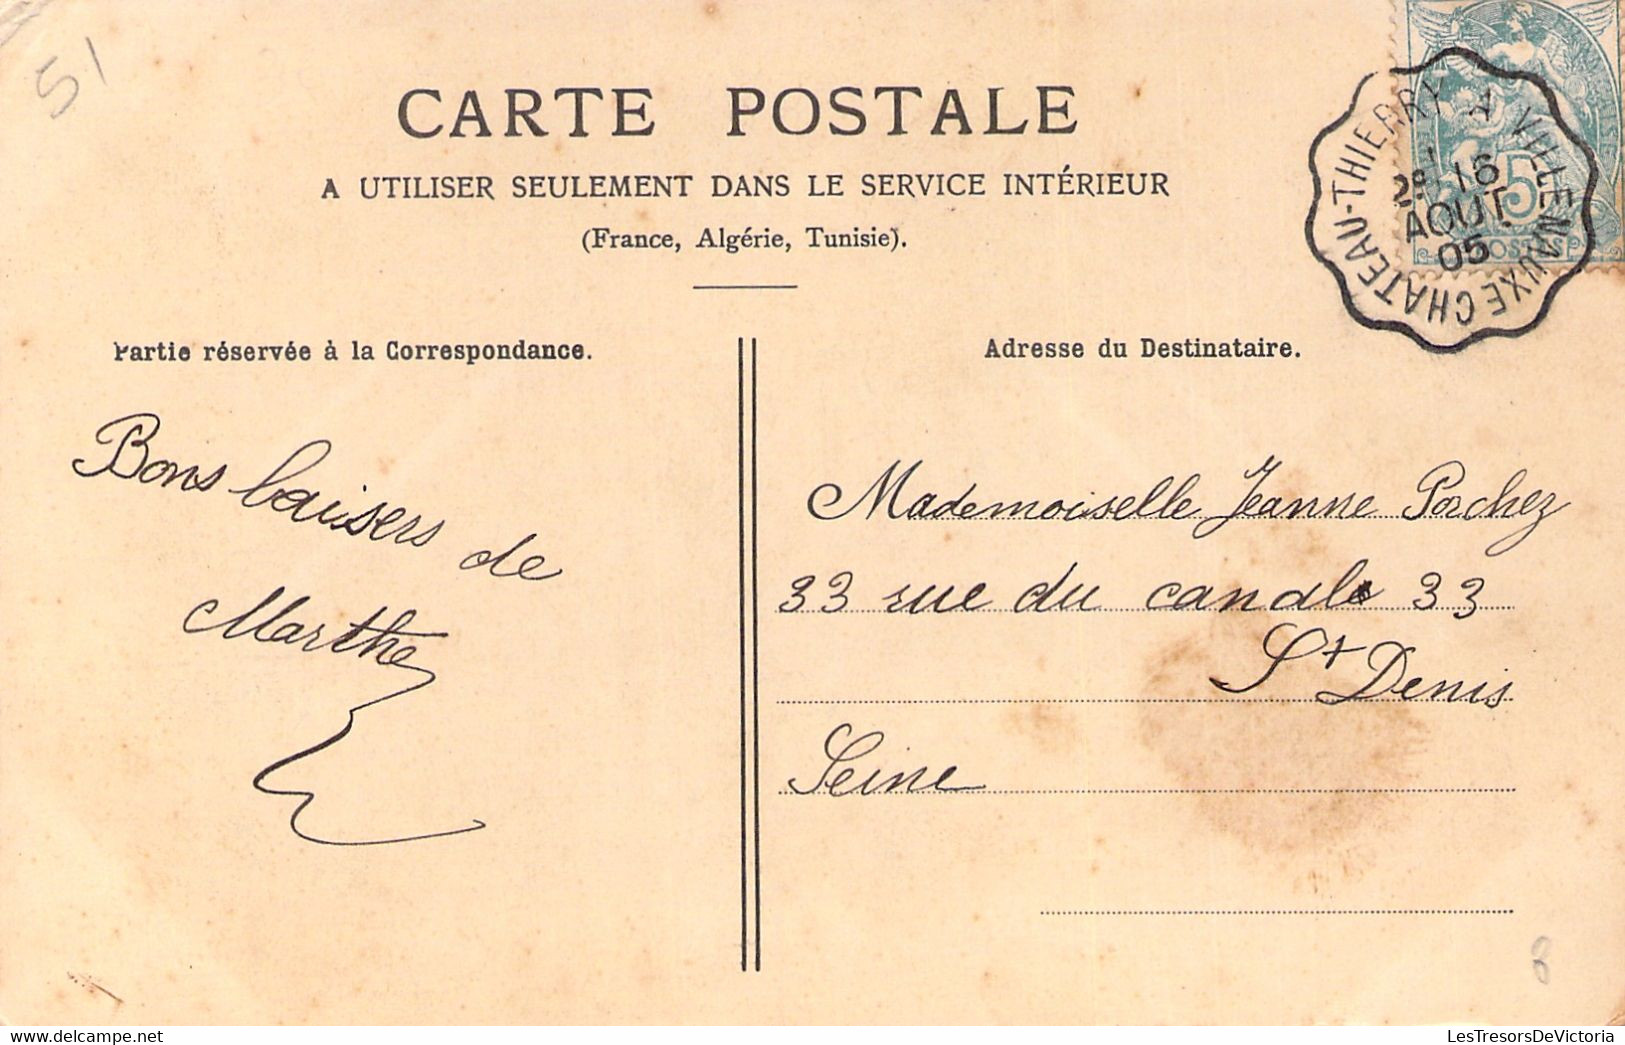 51
CARTE POSTALE
A UTILISER SEULEMENT DANS LE SERVICE INTÉRIEUR
(France, Algérie, Tunisie).
CHATEAU-THIERRY A VILLENAUXE
16
AOUT
05
5
POSTES
Partie réservée à la Correspondance.
Adresse du Destinataire.
Bons baisers de
Marthe
Mademoiselle Jeanne Porchez
33 rue du canal 33
St Denis
Seine
8
LesTresorsDeVictoria